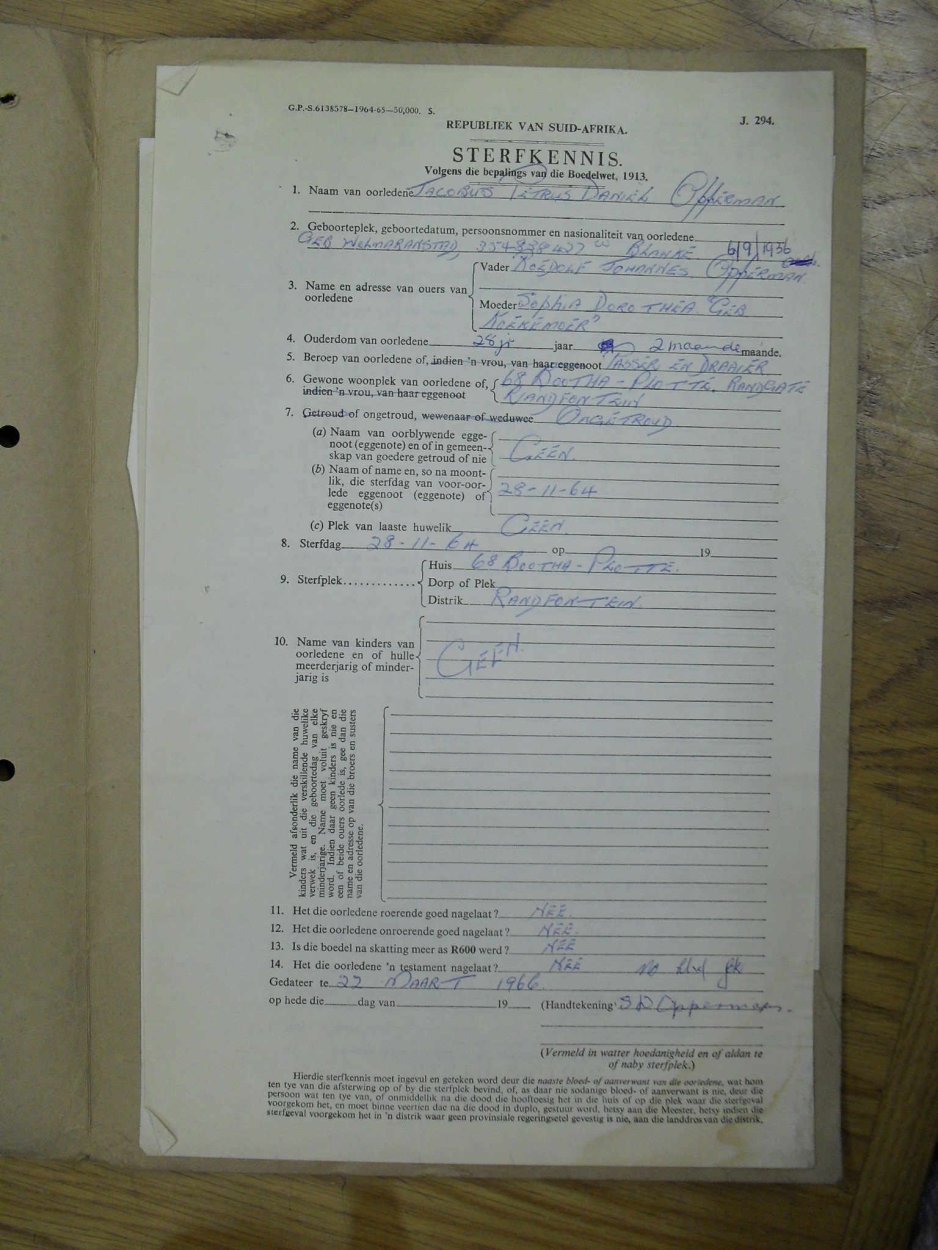 G.P.-S.6138578—1964-65—50,000. S.
J. 294.
REPUBLIEK VAN SUID-AFRIKA.
STERFKENNIS.
Volgens die bepalings van die Boedelwet, 1913.
1. Naam van oorledene JACOBUS PETRUS DANIEL OPPERMAN
2. Geboorteplek, geboortedatum, persoonsnommer en nasionaliteit van oorledene
GEB WOLMARANSTAD, BLANKE 6/9/1936
3. Name en adresse van ouers van oorledene
Vader ROEDOLF JOHANNES OPPERMAN
Moeder SOPHIA DOROTHEA "GEB
KOEKEMOER"
4. Ouderdom van oorledene 28 jr jaar 2 maande maande.
5. Beroep van oorledene of, indien 'n vrou, van haar eggenoot PASSER EN DRAAIER
6. Gewone woonplek van oorledene of, 68 BOOTHA-PLOTTE, RANDGATE
indien 'n vrou, van haar eggenoot RANDFONTEIN
7. Getroud of ongetroud, wewenaar of weduwee ONGETROUD
(a) Naam van oorblywende egge-
noot (eggenote) en of in gemeen-
skap van goedere getroud of nie GEEN.
(b) Naam of name en, so na moont-
lik, die sterfdag van voor-oor-
lede eggenoot (eggenote) of 28-11-64
eggenote(s)
(c) Plek van laaste huwelik GEEN.
8. Sterfdag 28-11-64 op 19
9. Sterfplek
Huis 68 BOOTHA-PLOTTE.
Dorp of Plek
Distrik RANDFONTEIN
10. Name van kinders van
oorledene en of hulle
meerderjarig of minder-
jarig is
GEEN
Vermeld afsonderlik die name van die
kinders wat uit die verskillende huwelike
verwek is, en die geboortedag van elke
minderjarige. Name moet voluit geskryf
word. Indien daar geen kinders is nie en
een of beide ouers oorlede is, gee dan die
name en adresse op van die broers en susters
van die oorledene.
11. Het die oorledene roerende goed nagelaat? NEE.
12. Het die oorledene onroerende goed nagelaat? NEE.
13. Is die boedel na skatting meer as R600 werd? NEE
14. Het die oorledene 'n testament nagelaat? NEE
Gedateer te 22 MAART 1966.
op hede die dag van 19 (Handtekening) S D Opperman.
(Vermeld in watter hoedanigheid en of aldan te
of naby sterfplek.)
Hierdie sterfkennis moet ingevul en geteken word deur die naaste bloed- of aanverwant van die oorledene, wat hom
ten tye van die afsterwing op of by die sterfplek bevind, of, as daar nie sodanige bloed- of aanverwant is nie, deur die
persoon wat ten tye van, of onmiddellik na die dood die hooftoesig het in die huis of op die plek waar die sterfgeval
voorgekom het, en moet binne veertien dae na die dood in duplo, gestuur word, hetsy aan die Meester, hetsy indien die
sterfgeval voorgekom het in 'n distrik waar geen provinsiale regeringsetel gevestig is nie, aan die landdros van die distrik,